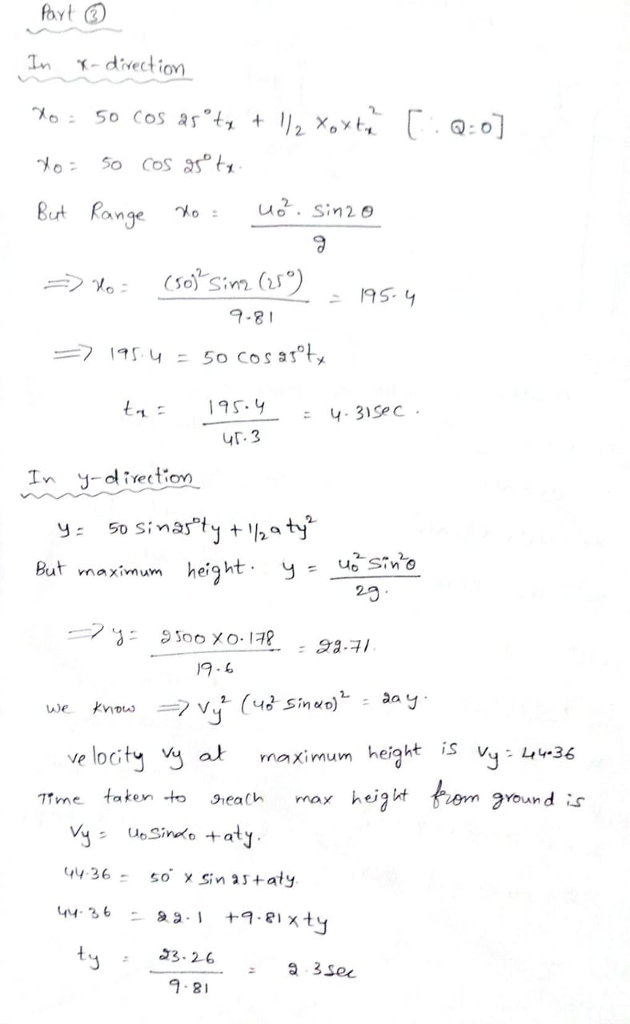 Part ③
In x-direction
x₀ = 50 cos 25° tₓ + 1/2 x₀ x tₓ² [∵ Q=0]
x₀ = 50 cos 25° tₓ.
But Range x₀ = u₀². sin2θ / g
=> x₀ = (50)² Sin2 (25°) / 9.81 = 195.4
=> 195.4 = 50 cos 25° tₓ
tₓ = 195.4 / 45.3 = 4.31 sec.
In y-direction
y = 50 sin 25° ty + 1/2 a ty²
But maximum height. y = u₀² sin²θ / 2g.
=> y = 2500 x 0.178 / 19.6 = 22.71.
we know => Vy² (u₀² sin α₀)² = 2ay.
velocity vy at maximum height is Vy = 44.36
Time taken to reach max height from ground is
Vy = u₀ Sin α₀ + aty.
44.36 = 50 x sin 25 + aty.
44.36 = 22.1 + 9.81 x ty
ty = 23.26 / 9.81 = 2.3 sec